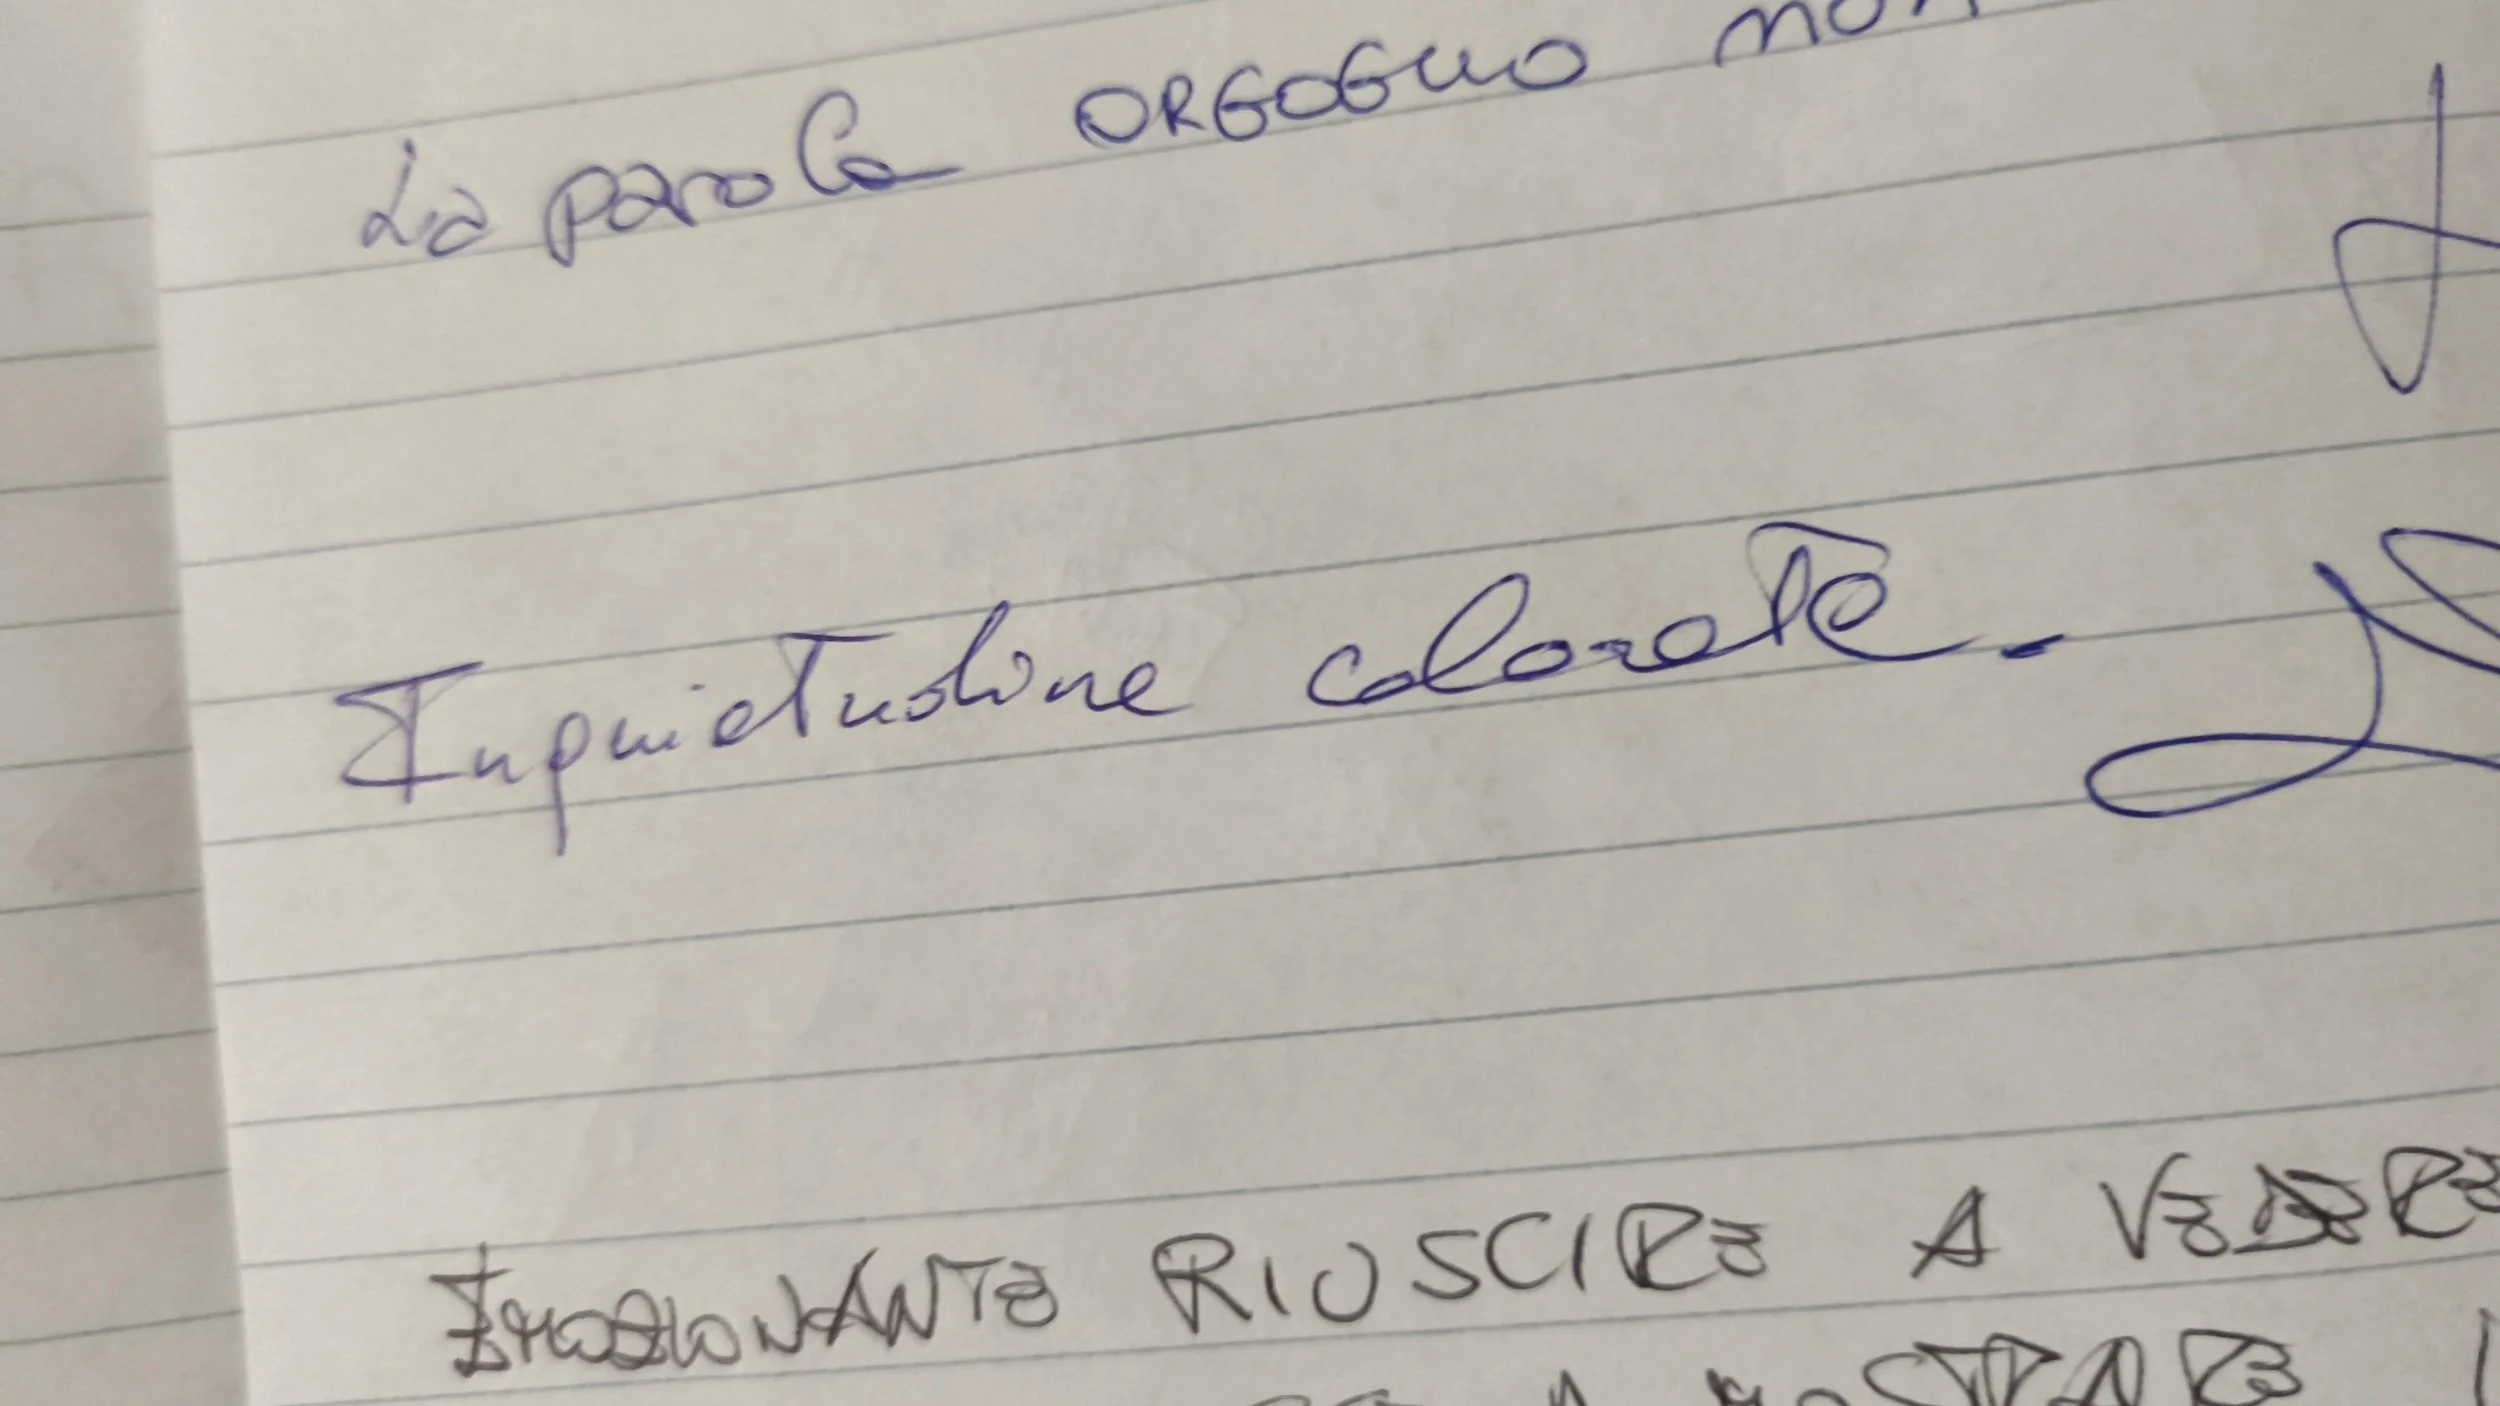 La parola ORGOGLIO non
Inquietudine colorata.
EMOZIONANTE RIUSCIRE A VEDERE
MOSTRARE